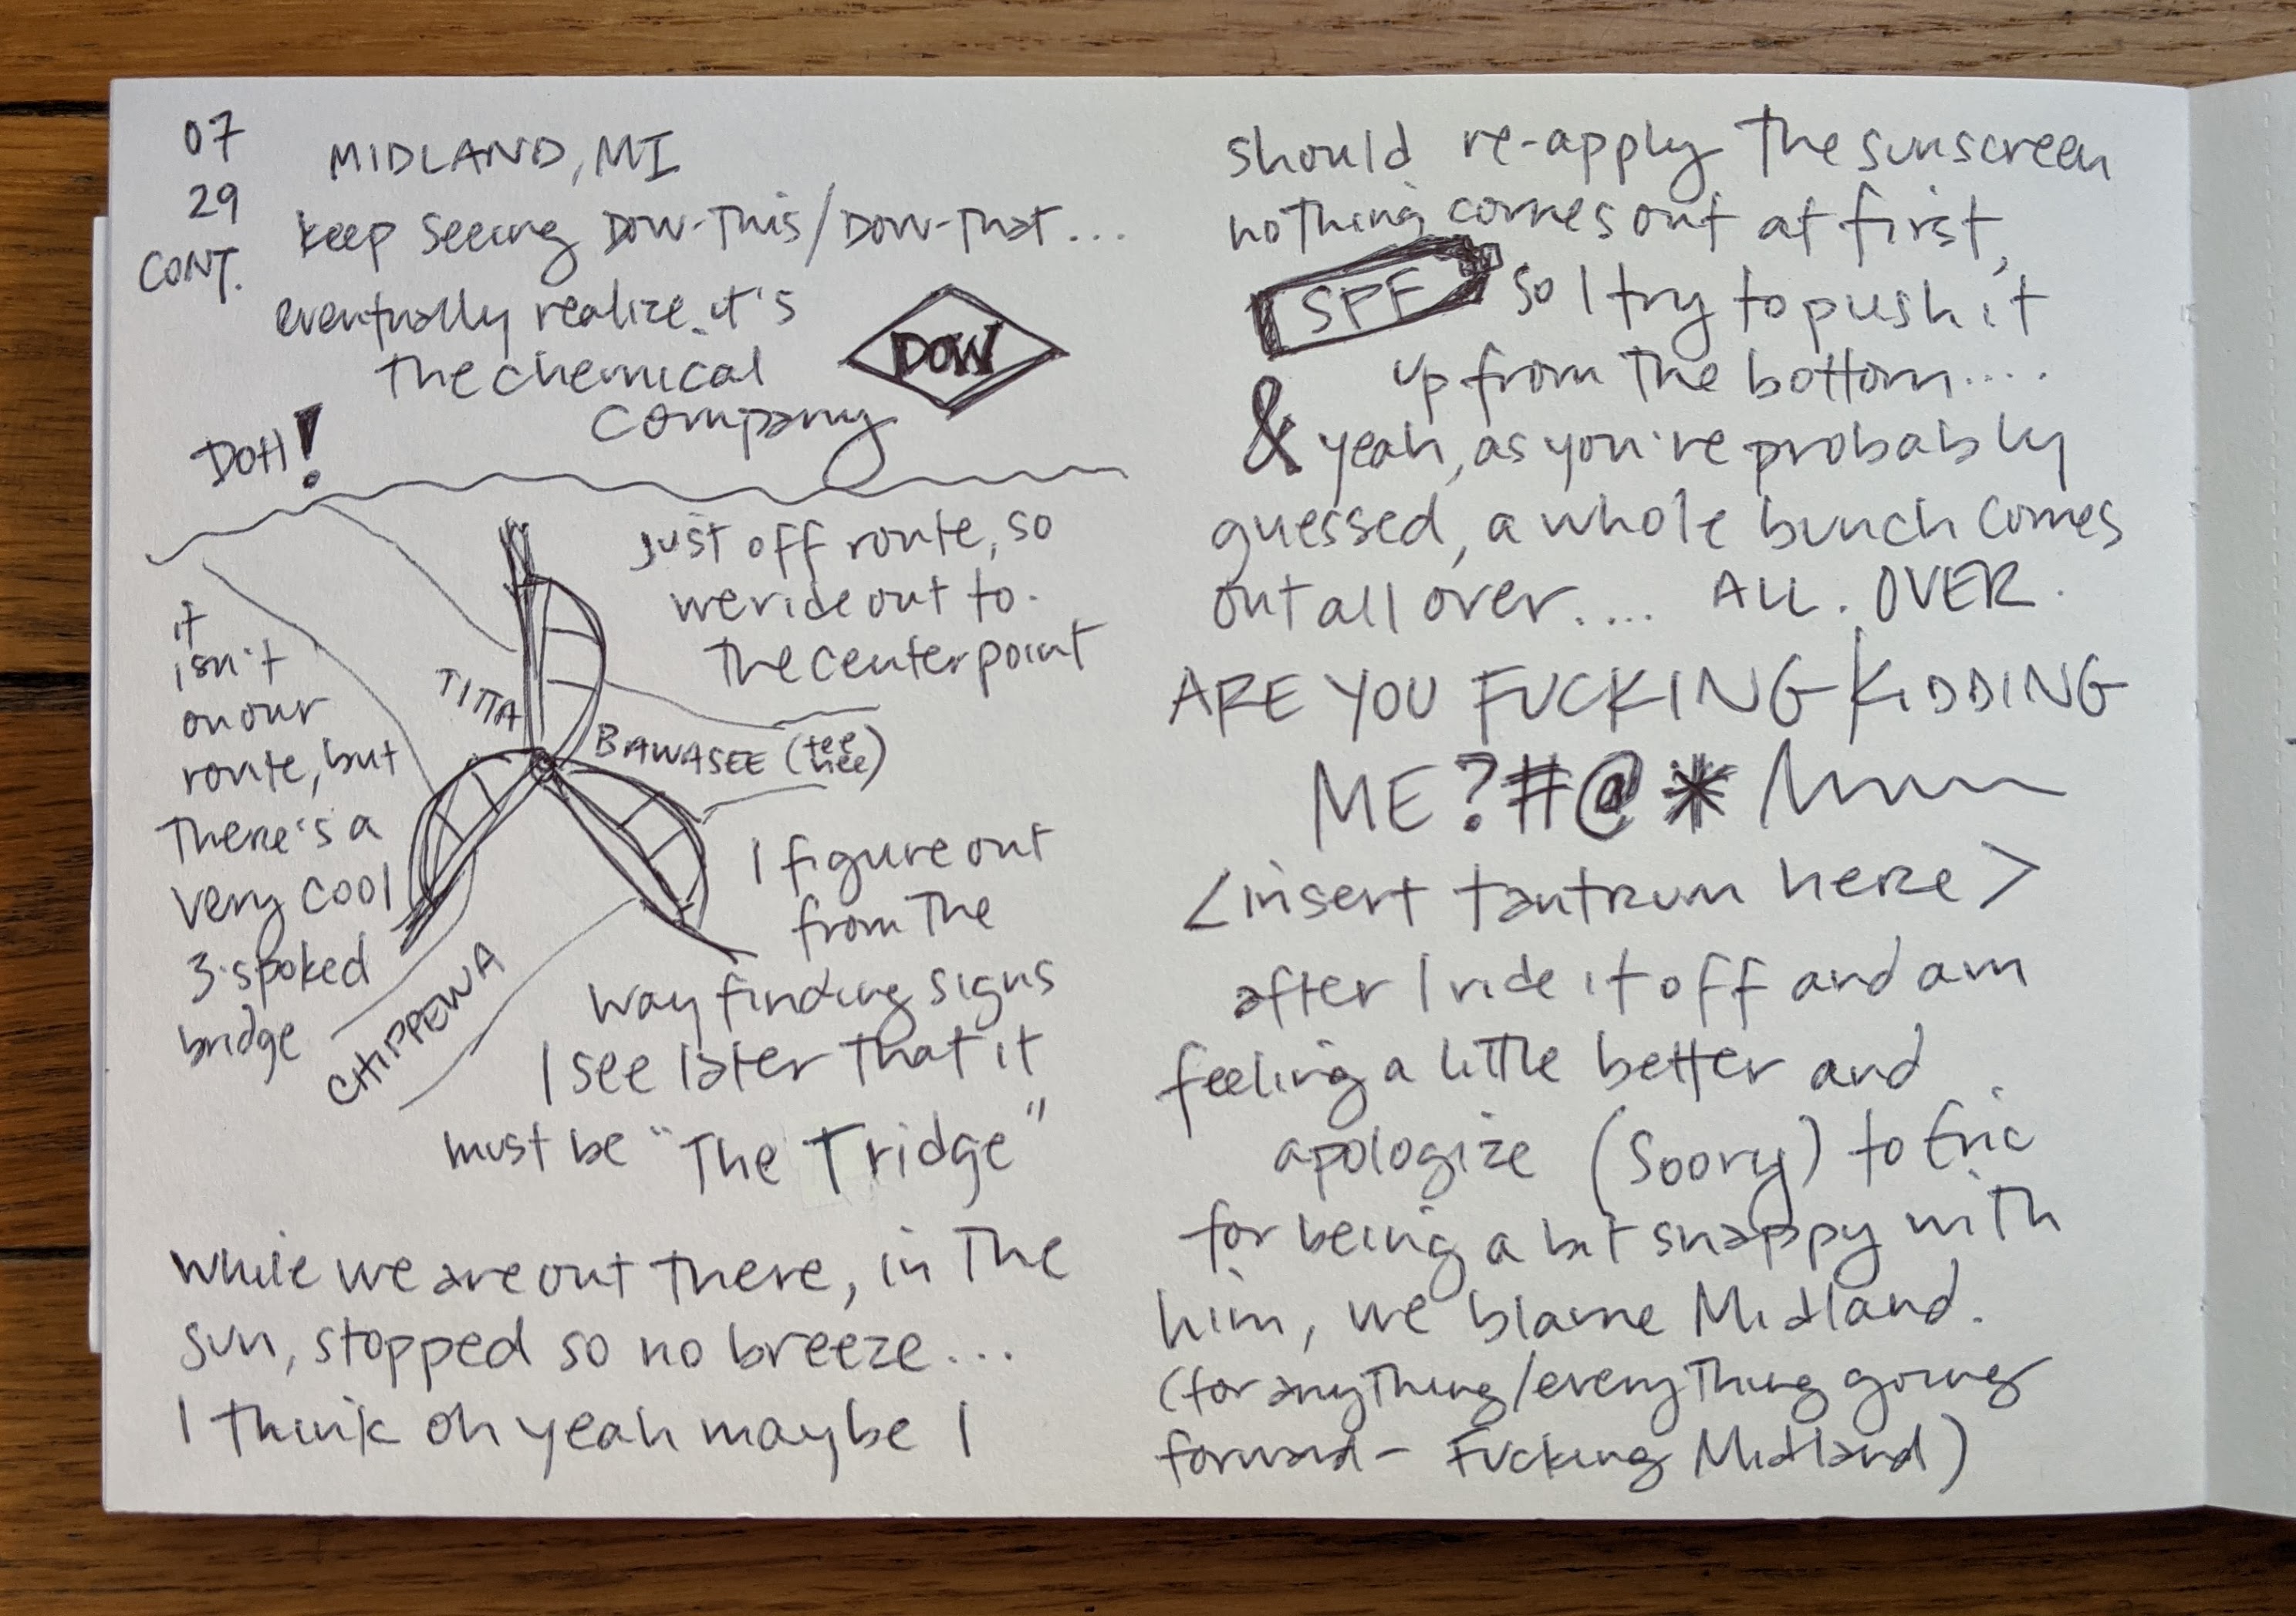 07
29
CONT.
MIDLAND, MI
keep seeing DOW-This/DOW-That...
eventually realize it's
the chemical
company
DOW
DOH!
it
isn't
on our
route, but
there's a
very cool
3-spoked
bridge
TITTA
BAWASEE (tee hee)
CHIPPEWA
just off route, so
we ride out to
the center point
I figure out
from the
way finding signs
I see later that it
must be "The Tridge"
while we are out there, in the
sun, stopped so no breeze...
I think oh yeah maybe I
should re-apply the sunscreen
nothing comes out at first,
SPF
so I try to push it
up from the bottom....
& yeah, as you're probably
guessed, a whole bunch comes
out all over.... ALL. OVER.
ARE YOU FUCKING KIDDING
ME?#@*
<insert tantrum here>
after I ride it off and am
feeling a little better and
apologize (Soory) to Eric
for being a bit snappy with
him, we blame Midland.
(for anything/everything going
forward - Fucking Midland)